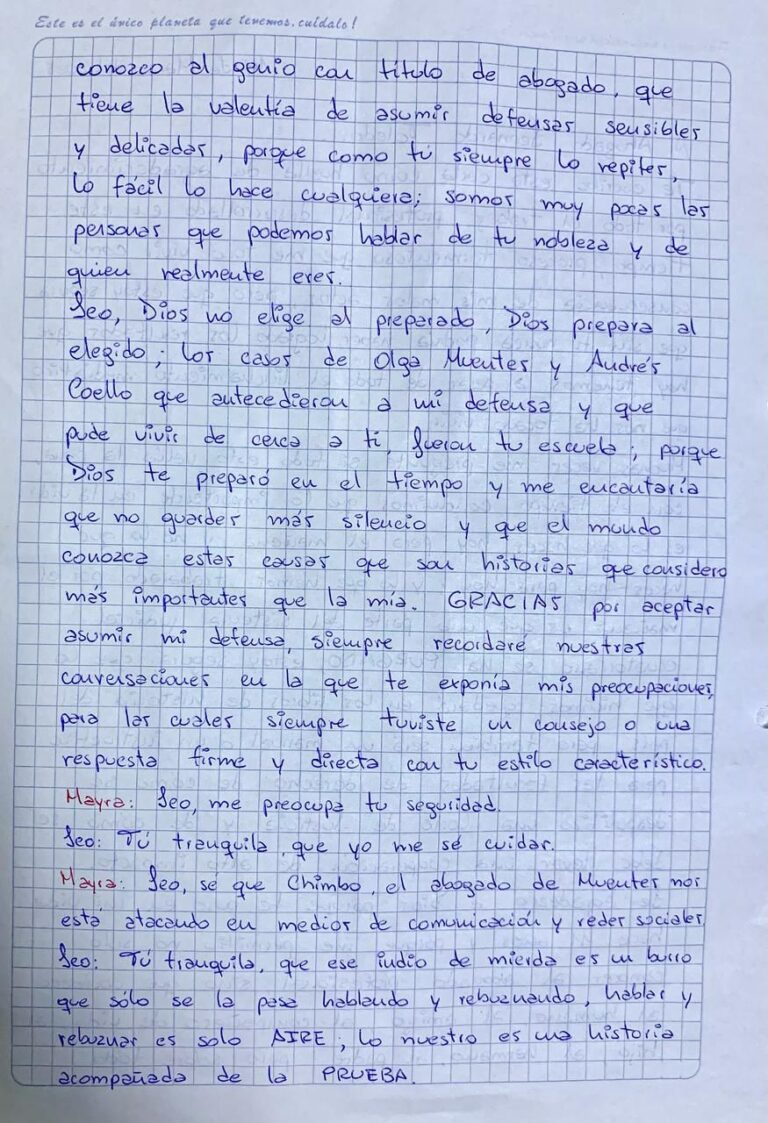 Este es el único planeta que tenemos, cuídalo!
conozco al genio con título de abogado, que
tiene la valentía de asumir defensas sensibles
y delicadas, porque como tú siempre lo repites,
lo fácil lo hace cualquiera; somos muy pocas las
personas que podemos hablar de tu nobleza y de
quien realmente eres.
Leo, Dios no elige al preparado, Dios prepara al
elegido; los casos de Olga Muentes y Andrés
Coello que antecedieron a mi defensa y que
pude vivir de cerca a ti, fueron tu escuela; porque
Dios te preparó en el tiempo y me encantaría
que no guardes más silencio y que el mundo
conozca estas causas que son historias que considero
más importantes que la mía. GRACIAS por aceptar
asumir mi defensa, siempre recordaré nuestras
conversaciones en la que te exponía mis preocupaciones,
para las cuales siempre tuviste un consejo o una
respuesta firme y directa con tu estilo característico.
Mayra: Leo, me preocupa tu seguridad.
Leo: Tú tranquila, que yo me sé cuidar.
Mayra: Leo, sé que Chimbo, el abogado de Muentes nos
está atacando en medios de comunicación y redes sociales.
Leo: Tú tranquila, que ese indio de mierda es un burro
que sólo se la pasa hablando y rebuznando, hablar y
rebuznar es solo AIRE; lo nuestro es una historia
acompañada de la PRUEBA.